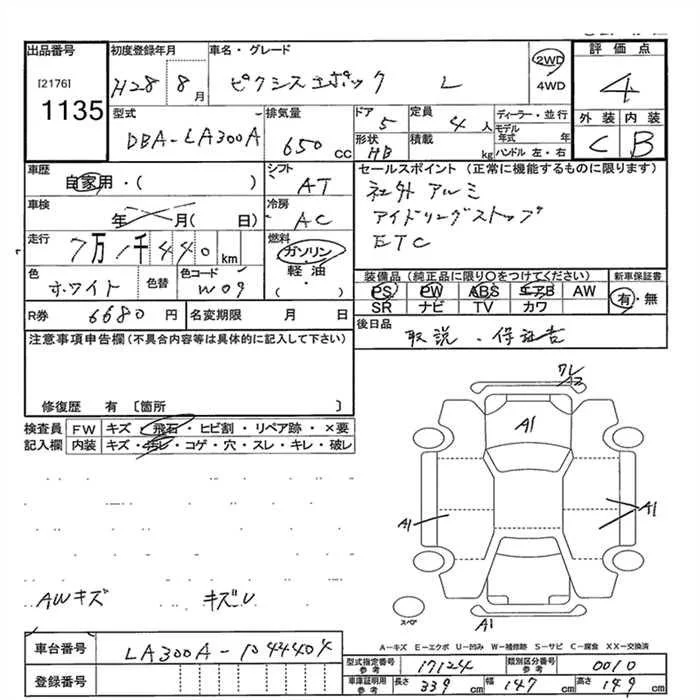 出品番号 初度登録年月 車名・グレード 評価点
[2176] 1135 H28 8月 ピクシスエポック L 2WD 4WD 4
型式 排気量 ドア 定員 ディーラー・並行 外装 内装
DBA-LA300A 650cc 5 4人 モデル年式 年 C B
形状 HB 積載 kg ハンドル 左・右
車歴 自家用・( ) シフト AT セールスポイント(正常に機能するものに限ります)
車検 年 月( 日) 冷房 AC 社外アルミ
アイドリングストップ
走行 7万1千440km 燃料 ガソリン・軽油・( ) ETC
色 ホワイト 色替 色コード W09 装備品(純正品に限り○をつけてください) 新車保証書
PS PW ABS エアB AW 有・無
SR ナビ TV カワ
R券 6680円 名変期限 月 日 後日品
取説・保証書
注意事項申告欄(不具合内容等は具体的に記入して下さい)
修復歴 有 〔箇所 〕
検査員 FW キズ・飛石・ヒビ割・リペア跡・×要
記入欄 内装 キズ・ヨゴレ・コゲ・穴・スレ・キレ・破レ
ワレ
A3
A1
A1
A1
AWキズ キズU
スペア
A1
A-キズ E-エクボ U-凹み W-補修跡 S-サビ C-腐食 XX-交換済
車台番号 LA300A-1044404
登録番号
型式指定番号 参考 17124 類別区分番号 参考 0010
車庫証明用 参考 長さ 339cm 幅 147cm 高さ 149cm